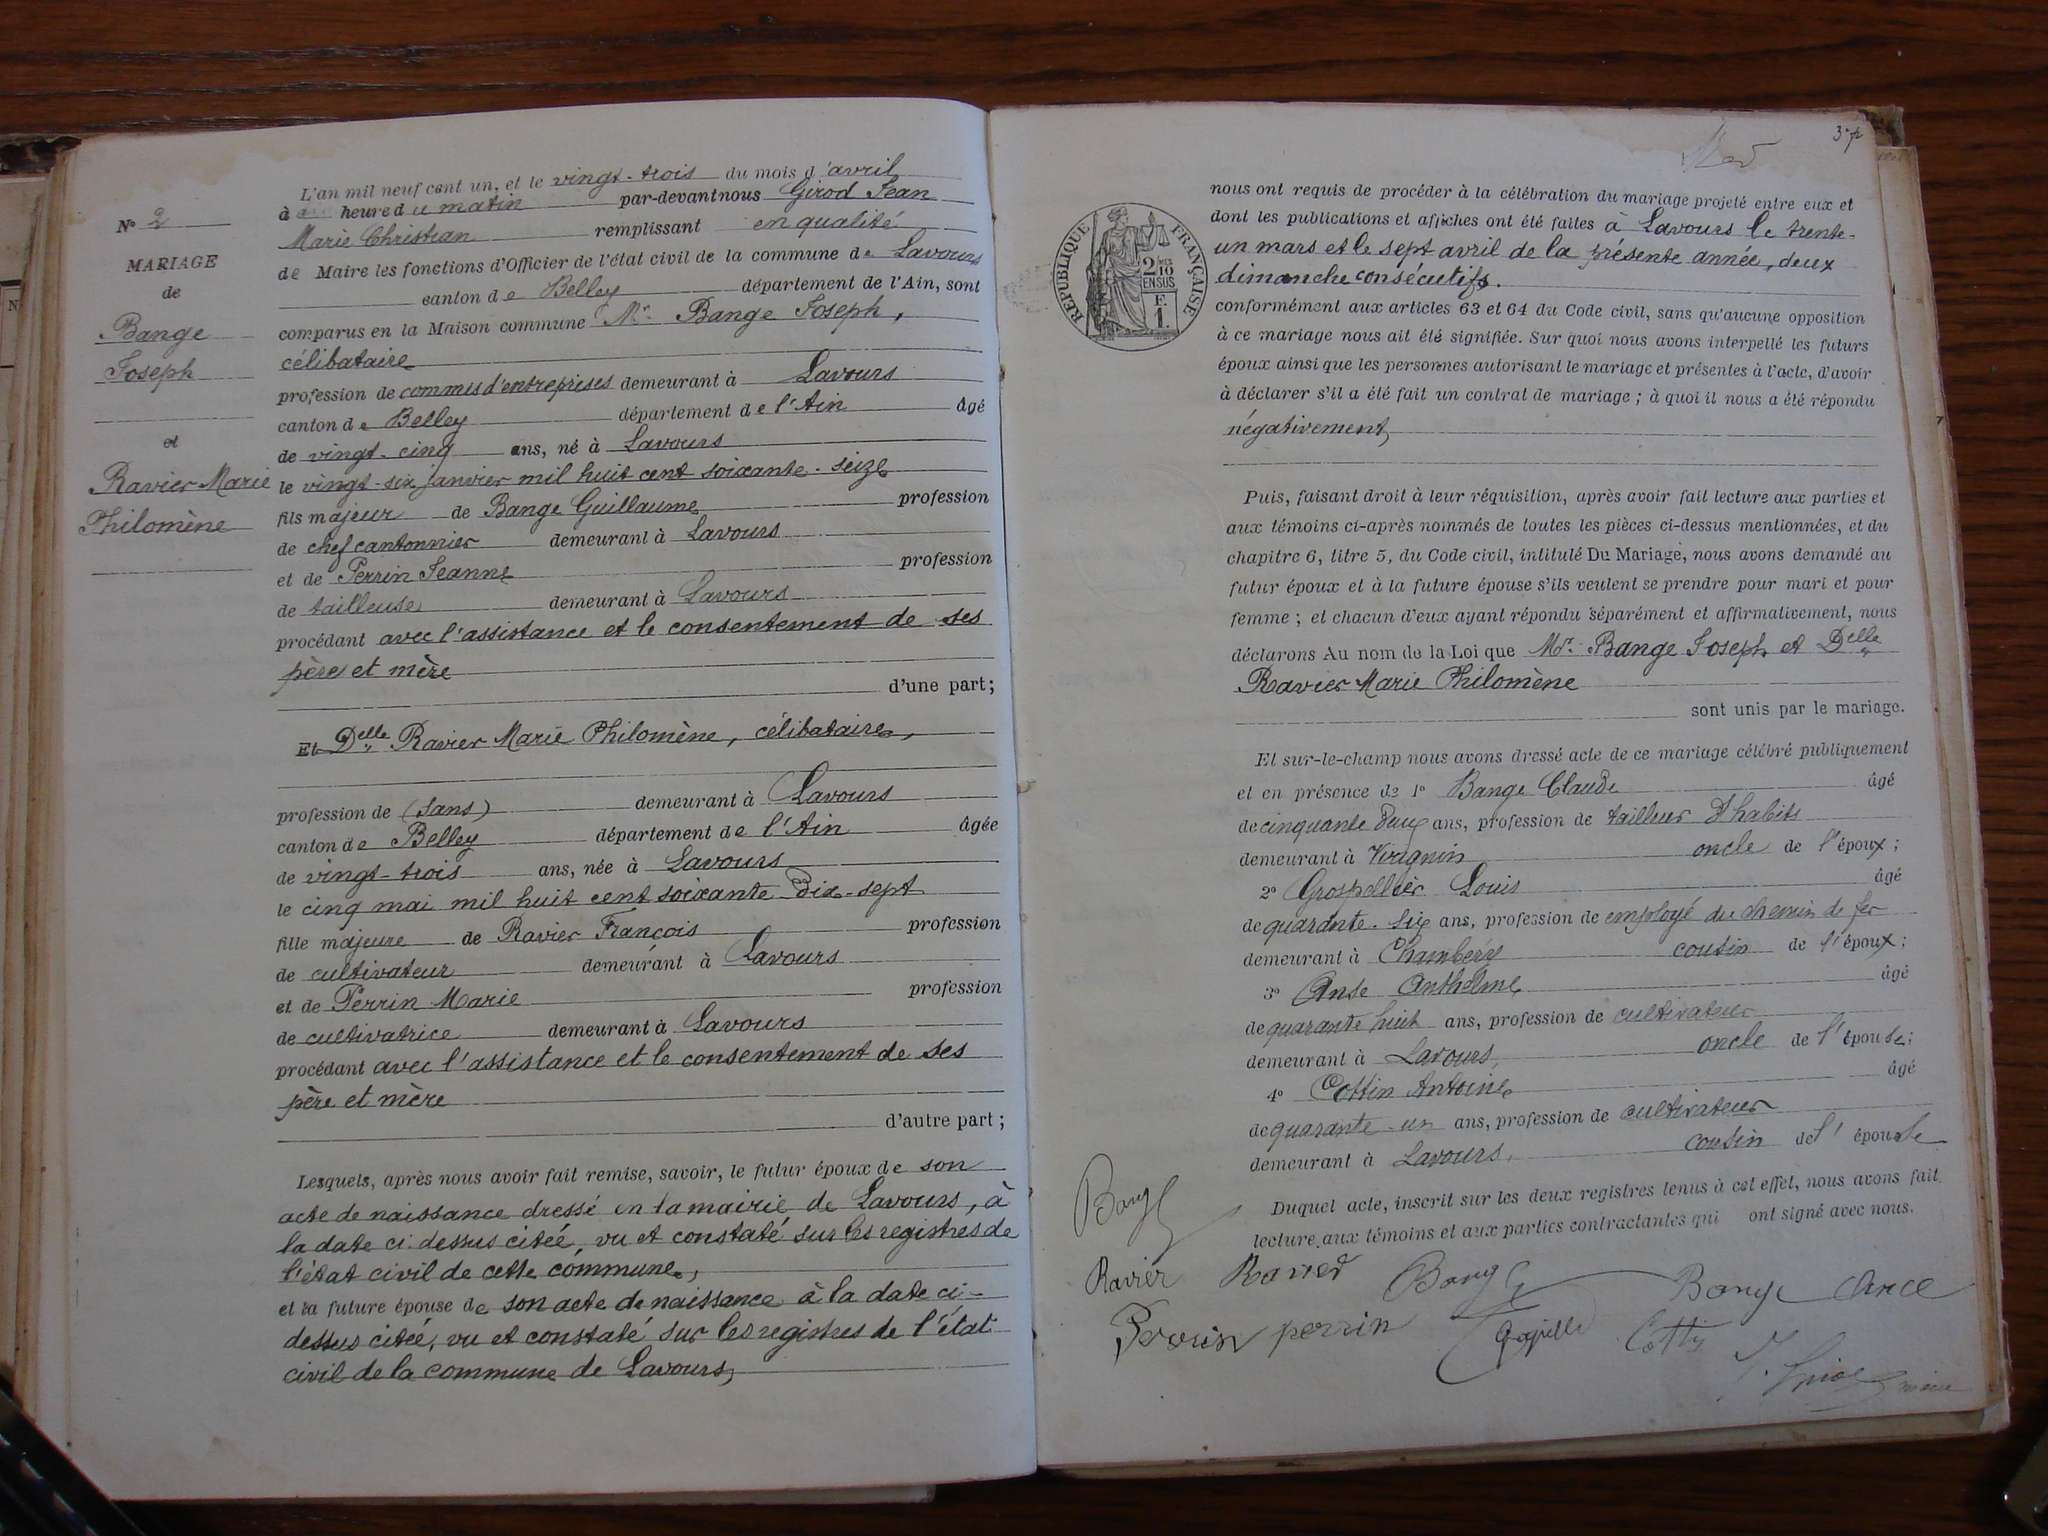 N° 2
MARIAGE
de
Bange
Joseph
et
Ravier Marie
Philomène
L'an mil neuf cent un, et le vingt-trois du mois d'avril
à heure du matin par-devant nous Girod Jean
Marie Christian remplissant en qualité
de Maire les fonctions d'Officier de l'état civil de la commune de Lavours
canton de Belley département de l'Ain, sont
comparus en la Maison commune Mr. Bange Joseph,
célibataire
profession de commis d'entreprises demeurant à Lavours
canton de Belley département de l'Ain âgé
de vingt-cinq ans, né à Lavours
le vingt-six janvier mil huit cent soixante-seize
fils majeur de Bange Guillaume profession
de chef cantonnier demeurant à Lavours
et de Perrin Jeanne profession
de tailleuse demeurant à Lavours
procédant avec l'assistance et le consentement de ses
père et mère
d'une part;
Et Delle Ravier Marie Philomène, célibataire,
profession de (sans) demeurant à Lavours
canton de Belley département de l'Ain âgée
de vingt-trois ans, née à Lavours
le cinq mai mil huit cent soixante-dix-sept
fille majeure de Ravier François profession
de cultivateur demeurant à Lavours
et de Perrin Marie profession
de cultivatrice demeurant à Lavours
procédant avec l'assistance et le consentement de ses
père et mère
d'autre part;
Lesquels, après nous avoir fait remise, savoir, le futur époux de son
acte de naissance dressé en la mairie de Lavours, à
la date ci-dessus citée, vu et constaté sur les registres de
l'état civil de cette commune,
et la future épouse de son acte de naissance à la date ci-
dessus citée, vu et constaté sur les registres de l'état
civil de la commune de Lavours,
37
RÉPUBLIQUE FRANÇAISE
2/10
EN SUS
F.
1.
nous ont requis de procéder à la célébration du mariage projeté entre eux et
dont les publications et affiches ont été faites à Lavours le trente-
un mars et le sept avril de la présente année, deux
dimanche consécutifs.
conformément aux articles 63 et 64 du Code civil, sans qu'aucune opposition
à ce mariage nous ait été signifiée. Sur quoi nous avons interpellé les futurs
époux ainsi que les personnes autorisant le mariage et présentes à l'acte, d'avoir
à déclarer s'il a été fait un contrat de mariage; à quoi il nous a été répondu
négativement
Puis, faisant droit à leur réquisition, après avoir fait lecture aux parties et
aux témoins ci-après nommés de toutes les pièces ci-dessus mentionnées, et du
chapitre 6, titre 5, du Code civil, intitulé Du Mariage, nous avons demandé au
futur époux et à la future épouse s'ils veulent se prendre pour mari et pour
femme; et chacun d'eux ayant répondu séparément et affirmativement, nous
déclarons Au nom de la Loi que Mr. Bange Joseph et Delle
Ravier Marie Philomène
sont unis par le mariage.
Et sur-le-champ nous avons dressé acte de ce mariage célébré publiquement
et en présence de 1° Bange Claude âgé
de cinquante deux ans, profession de tailleur d'habits
demeurant à Virignin oncle de l'époux;
2° Grospellier Louis âgé
de quarante-six ans, profession de employé du chemin de fer
demeurant à Chambéry cousin de l'époux;
3° Anse Anthelme âgé
de quarante huit ans, profession de cultivateur
demeurant à Lavours, oncle de l'épouse;
4° Cottin Antoine âgé
de quarante-un ans, profession de cultivateur
demeurant à Lavours, cousin de l'épouse
Duquel acte, inscrit sur les deux registres tenus à cet effet, nous avons fait
lecture aux témoins et aux parties contractantes qui ont signé avec nous.
Bange
Ravier Ravier Bange Bange Ance
Perrin perrin Cottin
maire